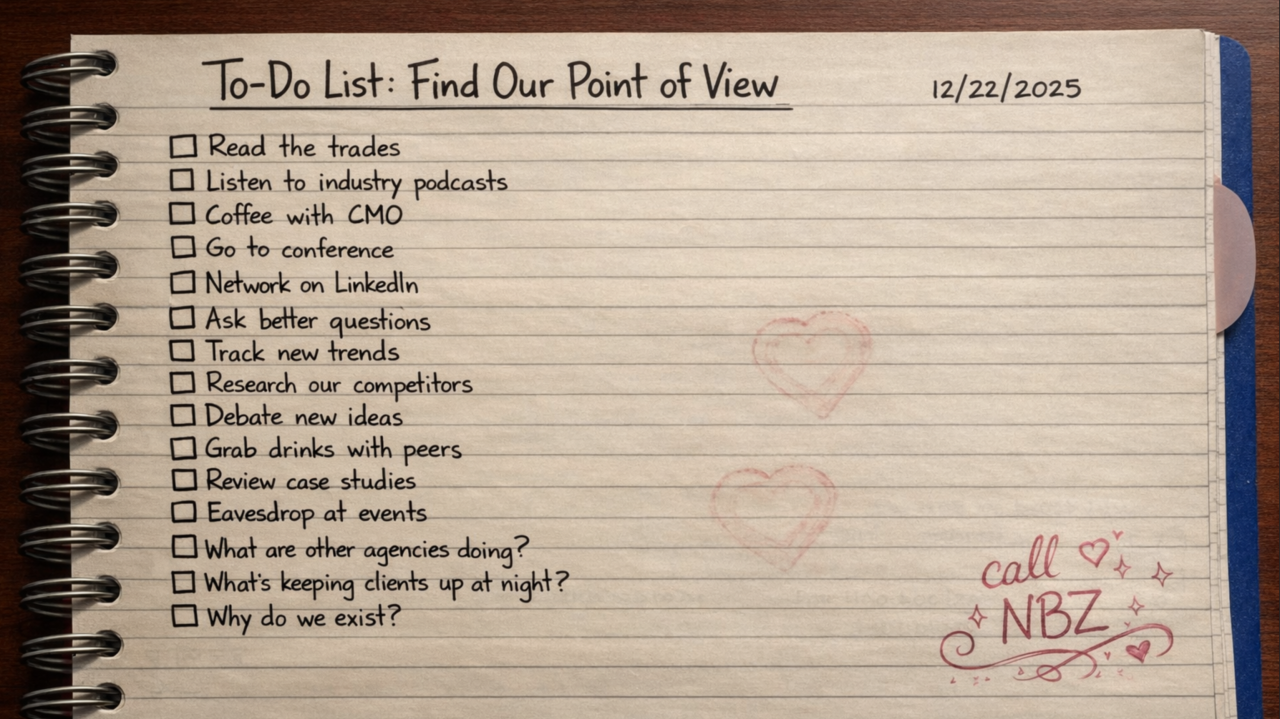 To-Do List: Find Our Point of View
12/22/2025
Read the trades
Listen to industry podcasts
Coffee with CMO
Go to conference
Network on LinkedIn
Ask better questions
Track new trends
Research our competitors
Debate new ideas
Grab drinks with peers
Review case studies
Eavesdrop at events
What are other agencies doing?
What's keeping clients up at night?
Why do we exist?
call
NBZ